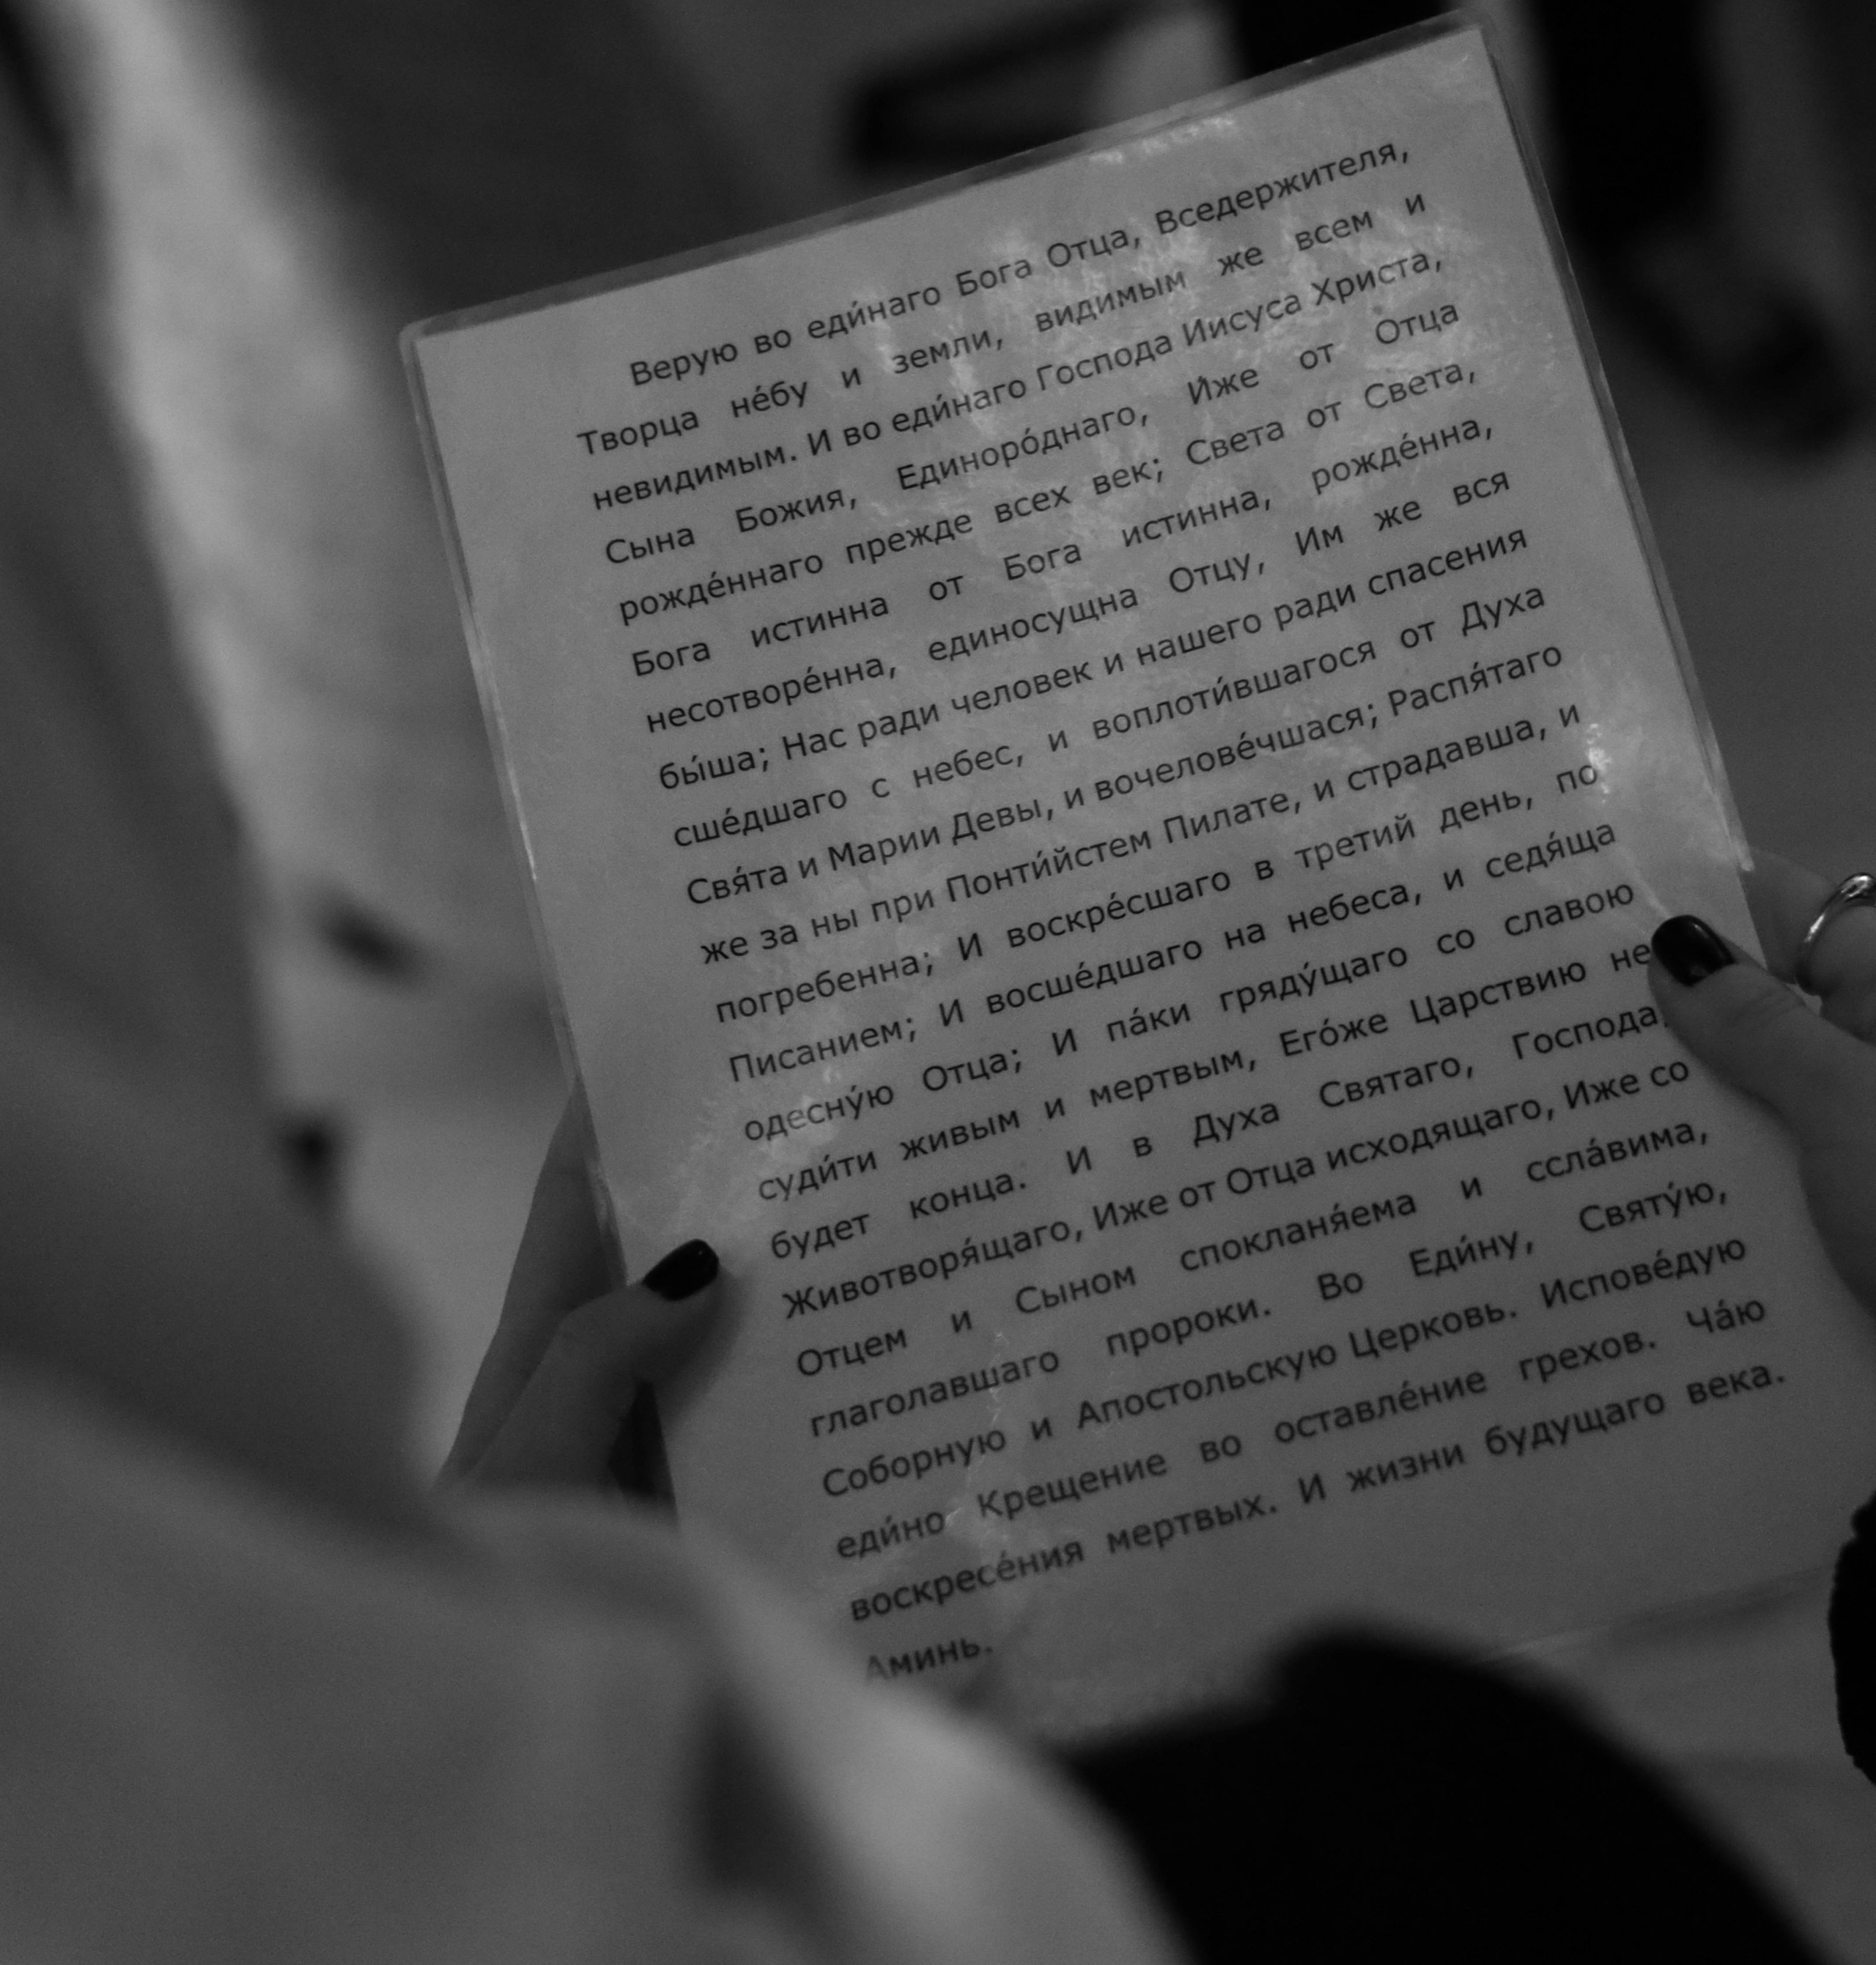 Верую во еди́наго Бога Отца, Вседержителя,
Творца не́бу и земли, видимым же всем и
невидимым. И во еди́наго Господа Иисуса Христа,
Сына Божия, Единоро́днаго, И́же от Отца
рожде́ннаго прежде всех век; Света от Света,
Бога истинна от Бога истинна, рожде́нна,
несотворе́нна, единосущна Отцу, Им же вся
бы́ша; Нас ради человек и нашего ради спасения
сше́дшаго с небес, и воплоти́вшагося от Духа
Свя́та и Марии Девы, и вочелове́чшася; Распя́таго
же за ны при Понти́йстем Пилате, и страдавша, и
погребенна; И воскре́сшаго в третий день, по
Писанием; И восше́дшаго на небеса, и седя́ща
одесну́ю Отца; И па́ки гряду́щаго со славою
суди́ти живым и мертвым, Его́же Царствию не
будет конца. И в Духа Святаго, Господа,
Животворя́щаго, Иже от Отца исходящаго, Иже со
Отцем и Сыном спокланя́ема и ссла́вима,
глаголавшаго пророки. Во Еди́ну, Святу́ю,
Соборную и Апостольскую Церковь. Испове́дую
еди́но Крещение во оставле́ние грехов. Ча́ю
воскресе́ния мертвых. И жизни будущаго века.
Аминь.